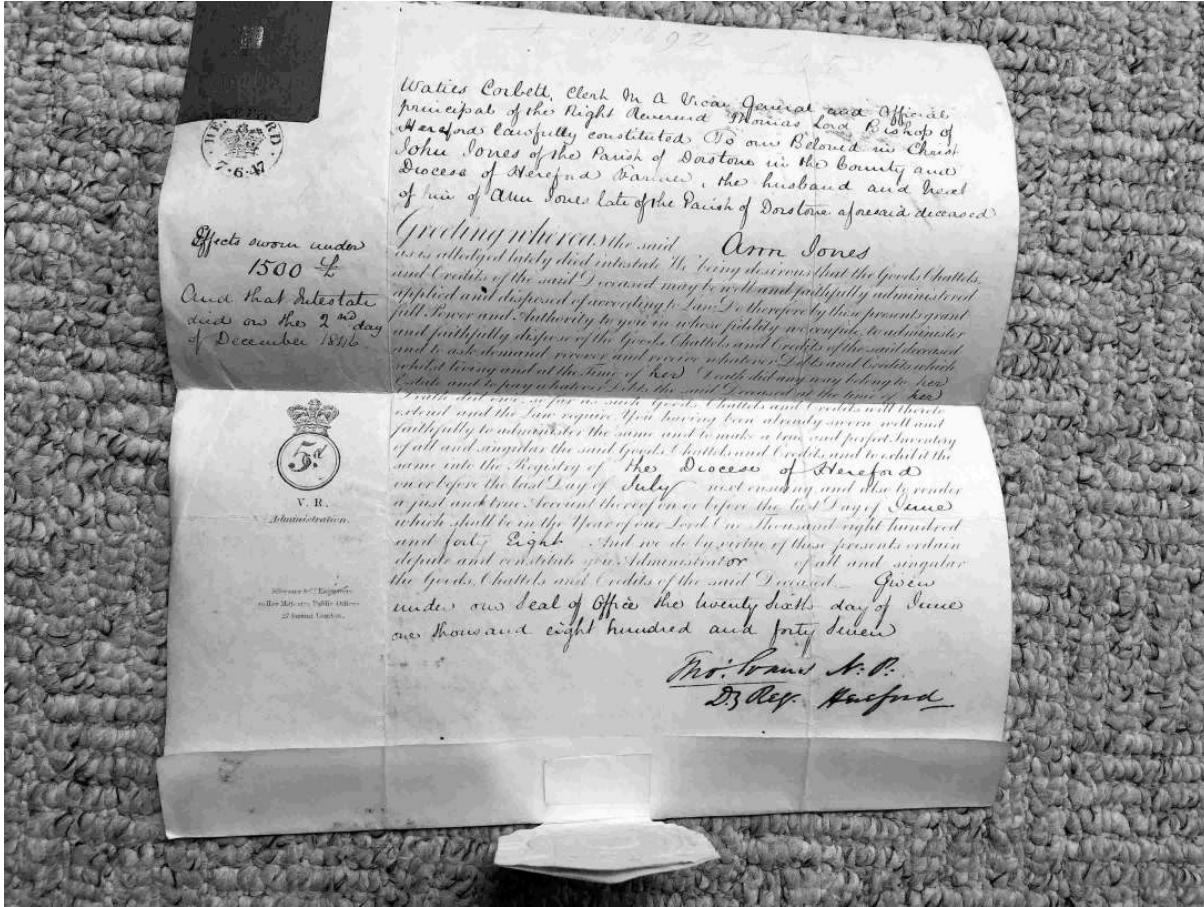 Waties Corbett, Clerk M A Vicar General and Official
principal of the Right Reverend Thomas Lord Bishop of
Hereford lawfully constituted To our Beloved in Christ
John Jones of the Parish of Dorstone in the County and
Diocese of Hereford Farmer, the husband and Next
of kin of Ann Jones late of the Parish of Dorstone aforesaid deceased
Greeting whereas the said Ann Jones
as is alledged lately died intestate We being desirous that the Goods, Chattels,
and Credits of the said Deceased may be well and faithfully administered
applied and disposed of according to Law, Do therefore by these presents grant
full Power and Authority to you in whose fidelity we confide, to administer
and faithfully dispose of the Goods, Chattels and Credits of the said deceased
and to ask demand recover and receive whatever Debts and Credits which
whilst living and at the time of her Death did any way belong to her
Estate and to pay whatever Debts the said Deceased at the time of her
Death did owe so far as such Goods, Chattels and Credits will thereto
extend and the Law require You having been already sworn well and
faithfully to administer the same and to make a true and perfect Inventory
of all and singular the said Goods, Chattels and Credits and to exhibit the
same into the Registry of the Diocese of Hereford
on or before the last Day of July next ensuing and also to render
a just and true Account thereof on or before the last Day of June
which shall be in the Year of our Lord One Thousand eight hundred
and forty Eight And we do by virtue of these presents ordain
depute and constitute you Administrator of all and singular
the Goods, Chattels and Credits of the said Deceased Given
under our Seal of Office the twenty sixth day of June
one thousand eight hundred and forty seven
Thos. Evans N. P.
Dy Reg. Hereford
7.6.47
Effects sworn under
1500 £
And that Intestate
died on the 2nd day
of December 1846
5.d
V. R.
Administration.
Engravers
to Her Majestys Public Offices
London.